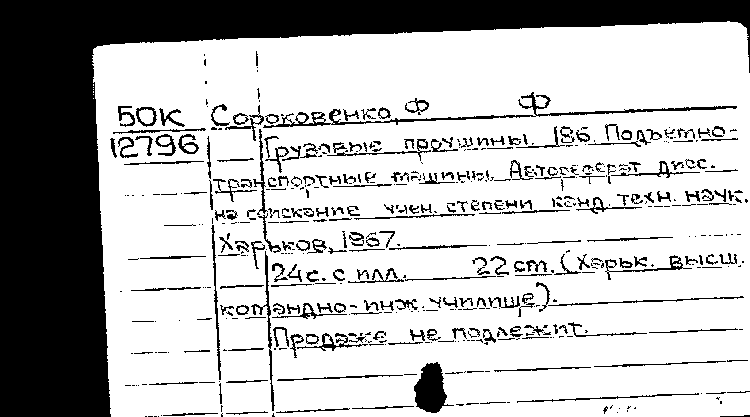 50К Сороковенко, Ф Ф
12796 Грузовые проушины. 186. Подъемно-
транспортные машины. Автореферат дисс.
на соискание учен. степени канд. техн. наук.
Харьков, 1967.
24с. с илл. 22 cm. (Харьк. высш.
командно-инж. училище).
Продаже не подлежит.